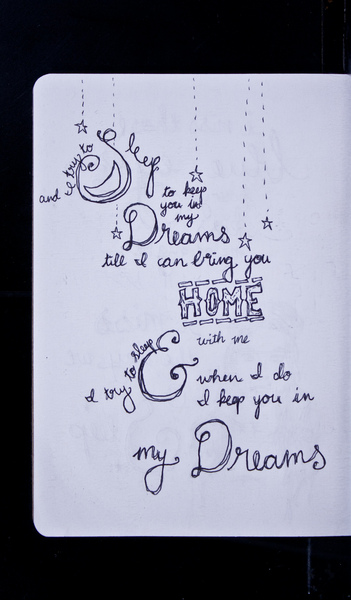 and I try to Sleep
to keep
you in
my
Dreams
till I can bring you
HOME
with me
& I try to sleep
when I do
I keep you in
my Dreams